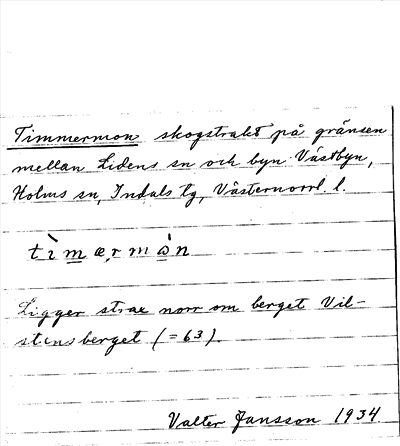 Timmermon skogstrakt på gränsen
mellan Lidens sn och byn Västbyn,
Holms sn, Indals tg, Västernorrl. l.
tìmærmòn
Ligger strax norr om berget Vil-
stensberget (=63).
Valter Jansson 1934